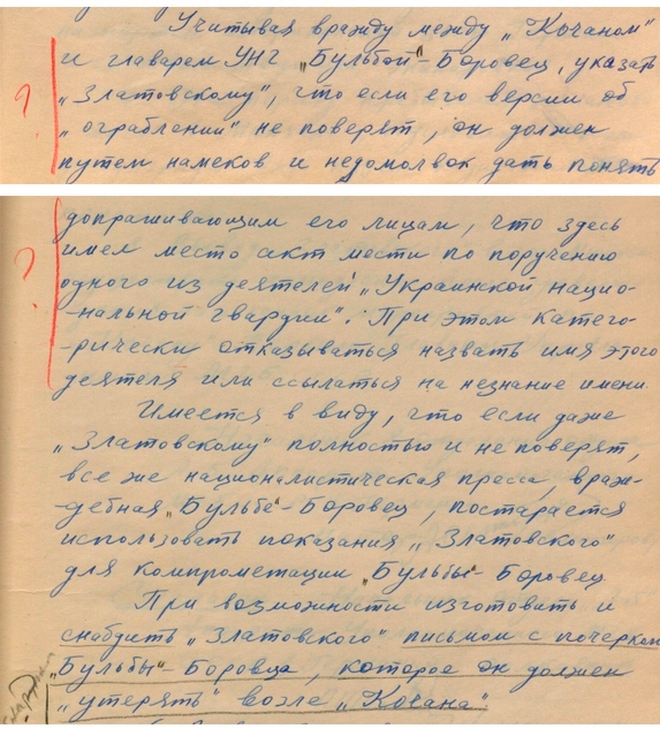 Учитывая вражду между „Кочаном"
и главарем УНГ „Бульбой"-Боровец, указать
„Златовскому", что если его версии об
„ограблении" не поверят, он должен
путем намеков и недомолвок дать понять
допрашивающим его лицам, что здесь
имел место акт мести по поручению
одного из деятелей „Украинской нацио-
-нальной гвардии". При этом катего-
-рически отказываться назвать имя этого
деятеля или ссылаться на незнание имени.
Имеется в виду, что если даже
„Златовскому" полностью и не поверят,
все же националистическая пресса, враж-
-дебная „Бульбе"-Боровец, постарается
использовать показания „Златовского"
для компрометации „Бульбы"-Боровец
При возможности изготовить и
снабдить „Златовского" письмом с почерком
„Бульбы"-Боровца, которое он должен
„утерять" возле „Кочана".